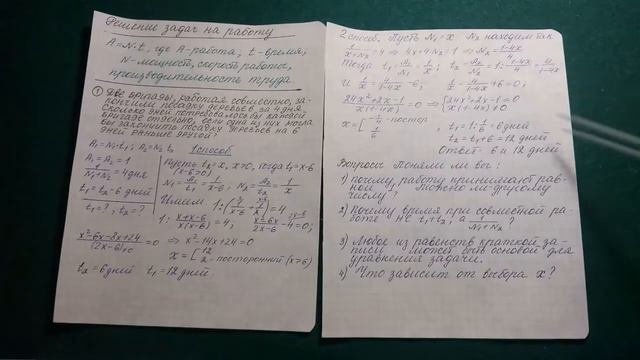 Решение задач на работу
A=N·t, где A-работа, t-время,
N-мощность, скорость работы,
производительность труда
① Две бригады, работая совместно, за-
кончили посадку деревьев за 4 дня.
Сколько дней потребовалось бы каждой
бригаде отдельно, если одна из них могла
бы закончить посадку деревьев на 6
дней раньше другой?
A₁=N₁·t₁; A₂=N₂·t₂
A₁=A₂=1
1/(N₁+N₂)=4дня
t₁=t₂-6дней
t₁=?, t₂=?
1способ
Пусть t₂=x, x>0, тогда t₁=x-6
(x-6>0)
N₁=A₁/t₁=1/(x-6), N₂=A₂/t₂=1/x
Имеем 1:(1/(x-6)+1/x)=4
1:(x+x-6)/(x(x-6))=4; (x²-6x)/(2x-6)-4=0;
(x²-6x-8x+24)/(2x-6)=0 ⇒ x²-14x+24=0
x=[12
2-посторонний (x>6)
t₂=6дней t₁=12дней
2способ. Пусть N₁=x N₂ находим так
1/(x+N₂)=4 ⇒ 4x+4N₂=1 ⇒ N₂=(1-4x)/4
Тогда t₁=A₁/N₁=1/x; t₂=A₂/N₂=1:(1-4x)/4=4/(1-4x)
И 1/x=4/(1-4x)-6; 1/x-4/(1-4x)+6=0;
(24x²+2x-1)/(x(1-4x))=0 ⇒ {24x²+2x-1=0
x(1-4x)≠0
x=[-1/4-постор
1/6
, t₁=1:1/6=6дней
t₂=t₁+6=12дней
Ответ: 6 и 12дней
Вопросы: Поняли ли вы:
1) почему работу принимают рав-
ной 1, можно ли другому
числу?
2) Почему время при совместной ра-
боте не t₁+t₂, а 1/(N₁+N₂)?
3) Любое из равенств краткой за-
писи может быть основой для
уравнения задачи.
4) Что зависит от выбора x?